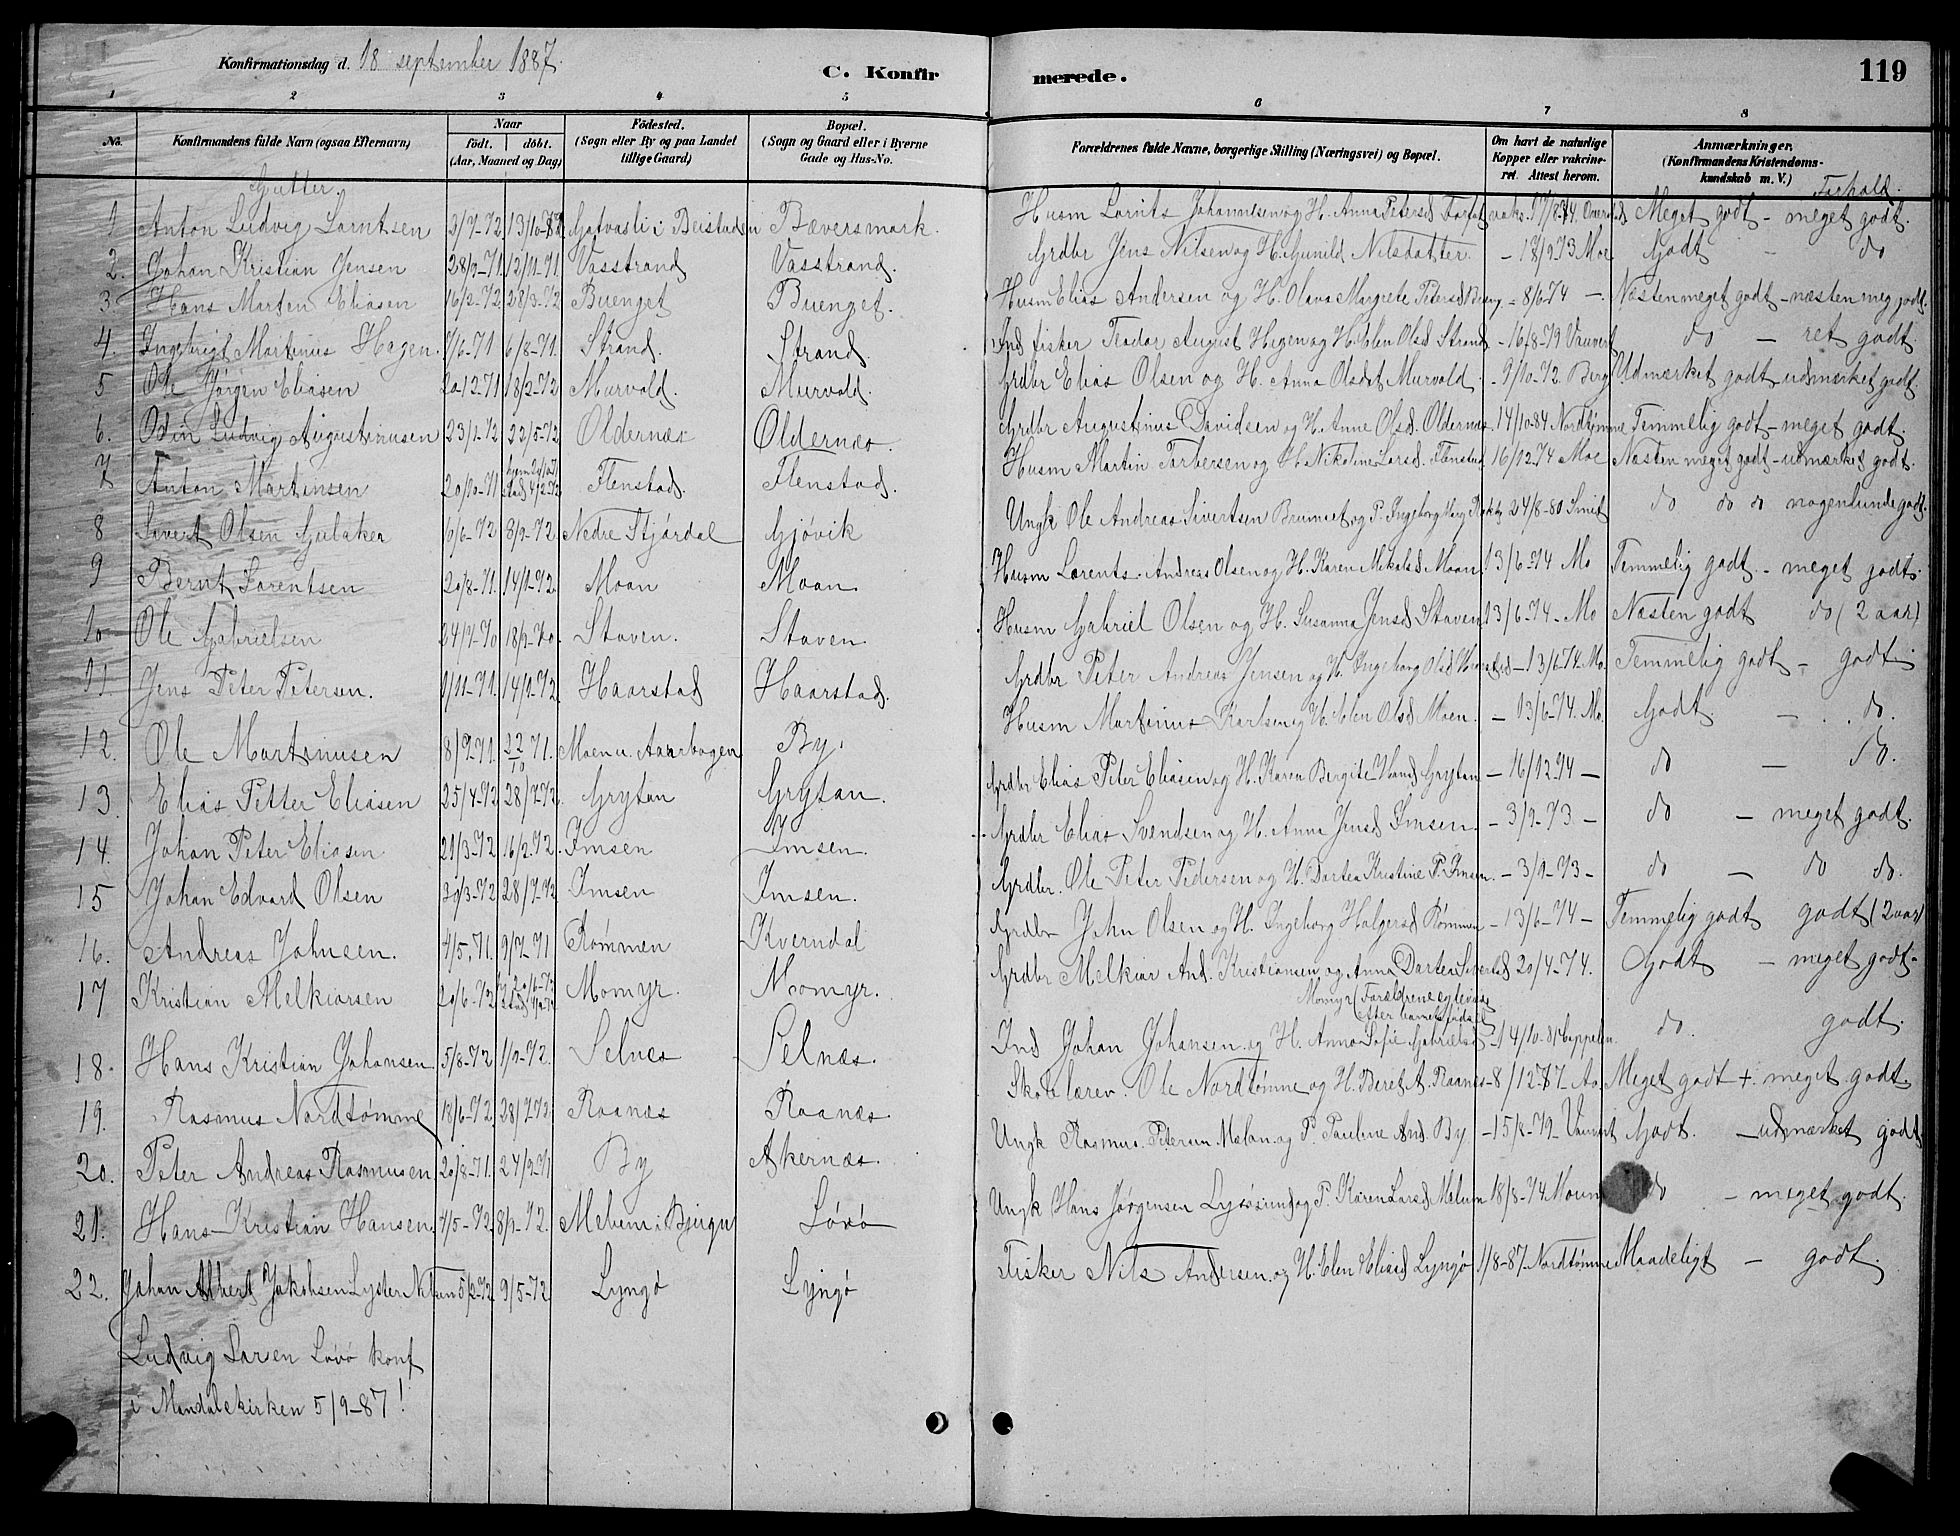 Konfirmationsdag d. 18 september 1887.
C. Konfirmerede.
119
1 2 3 4 5 6 7 8
No.
Konfirmandens fulde Navn (ogsaa Efternavn)
Naar
födt. döbt.
(Aar, Maaned og Dag)
Födested.
(Sogn eller By og paa Landet
tillige Gaard)
Bopæl.
(Sogn og Gaard eller i Byerne
Gade og Hus-No.
Forældrenes fulde Navne, borgerlige Stilling (Næringsvei) og Bopæl.
Om havt de naturlige
Kopper eller vakcine-
ret. Attest herom.
Anmærkninger.
(Konfirmandens Kristendoms-
kundskab m. V.)
Forhold.
Gutter.
1 Anton Ludvig Larntsen 3/7-72 13/10-72 i Beistaden Bæversmark. Husm Larnts Johannesen og H. Anna Petersd Meget godt - meget godt.
2. Johan Kristian Jensen 28/9-71 12/11-71 Vasstrand Vasstrand. Grdbr Jens Nilsen og H. Gunild Nilsdatter - 18/9 73 Moe Godt - do
3. Hans Morten Eliasen 16/2-72 28/3-72 Buenget Buenget. Husm Elias Andersen og H. Olava Margrete Petersd - 8/6-74 - Næsten meget godt - næsten meg godt.
4. Ingebrigt Martinus Hagen. 7/6-71 6/8-71. Strand. Strand. Ind fisker Teodor August Hagen og H. Elen Olsd Strand - 16/8-79 do - ret godt
5 Ole Jørgen Eliasen 20/12-71 18/2-72 Murvold. Murvold. Grdbr Elias Olsen og H. Anna Olsdt Murvold - 9/10-72. Berg Udmærket godt - udmærket godt.
6. Odin Ludvig Augustinusen 23/1-72 22/5-72 Oldernæs Oldernæs. Grdbr Augustinus Davidsen og H. Anne Olsd. Oldernæs. 14/10-84 Nordtømme Temmelig godt - meget godt.
7 Anton Martinsen 20/10-71 stad. 4/2-72 Flenstad. Flenstad. Husm Martin Torbersen og H. Nikoline Larsd. Flenstad 16/12-74 Moe Næsten meget godt - udmærket godt.
8 Sivert Olsen Gulaker 6/6-72 8/9-72 Nedre Stjørdal Gjøvik Ungk Ole Andreas Sivertsen og P. Ingeborg 24/8-80 Smit do do do nogenlunde godt.
9 Bernt Larentsen 20/8-71. 14/1-72. Moan Moan. Husm Lorents Andreas Olsen og H. Karen Mikalsd Moan 13/6-74 Mo Temmelig godt - meget godt.
10 Ole Gabrielsen 24/7-70 18/9-70. Staven. Staven. Husm Gabriel Olsen og H. Susanna Jensd Staven 13/6-74. Mo Næsten godt do (2 aar)
11 Jens Peter Petersen. 1/11-71. 14/1-72 Haarstad Haarstad. Grdbr Peter Andreas Jensen og H. Ingeborg Olsd - 13/6-74. Mo. Temmelig godt - godt
12. Ole Martinusen 8/9-71 22/10 71. Moen u. Aarbogen By. Husm Martinus Karlsen og H. Elen Olsd Moen. - 13/6-74. Mo. Godt - do.
13. Elias Petter Eliasen 25/4-72 28/7-72. Grytan Grytan. Grdbr Elias Peter Eliasen og H. Karen Bergite Grytan - 16/12 74 - do - do.
14. Johan Peter Eliasen 29/3-72 Imsen Imsen. Grdbr Elias Svendsen og H. Anna Jensd Imsen. - 3/9-73 - do - meget godt.
15 Johan Edvard Olsen 30/3-72 28/7-72 Imsen Imsen. Grdbr. Ole Peter Pedersen og H. Dortea Kristine P. Imsen. - 3/9-73 - do - do do.
16. Andreas Johnsen. 4/5-71. 9/7-71 Rømmen Kverndal Grdbr John Olsen og H. Ingeborg Holgersd Rømmen - 13/6-74 - Temmelig godt godt (2 aar)
17 Kristian Melkiorsen 20/6-72 Momyr. Momyr. Grdbr Melkior And. Kristiansen og Anna Dortea 20/4-74. Godt - meget godt -
Momyr (Forældrene
efter barnets fødsel
18. Hans Kristian Johansen. 5/8-72 1/9-72. Selnæs Selnæs. Ind Johan Johansen og H. Anna Sofie Gabrielsd - 14/10-81 Coppelen. do. godt.
19. Rasmus Nordtømme 18/6-72 28/7 72. Raanæs Raanæs. Skolelærer. Ole Nordtømme og H. Beret A. Raanæs - 8/12 87. Meget godt + meget godt.
20. Peter Andreas Rasmusen 20/8-71. 24/9-71 By Akernæs. Ungk Rasmus Petersen Mælan og P. Pauline And. By - 15/8-79 - Godt. - udmærket godt
21. Hans Kristian Hansen. 4/5-72. 8/9-72. Mebuen i Bjugn Løvø Ungk Hans Jørgensen Lyssund og P. Karen Larsd 18/8-74. do - meget godt.
22. Johan Albert Jakobsen Lyster Nilsen 5/2-72. 9/5-72. Lyngø Lyngø Fisker Nils Andersen og H. Elen Eliasd Lyngø 1/8-87. Nordtømme Maadeligt - godt.
Ludvig Laren Løvø konf
i Mandalskirken 5/9-87!